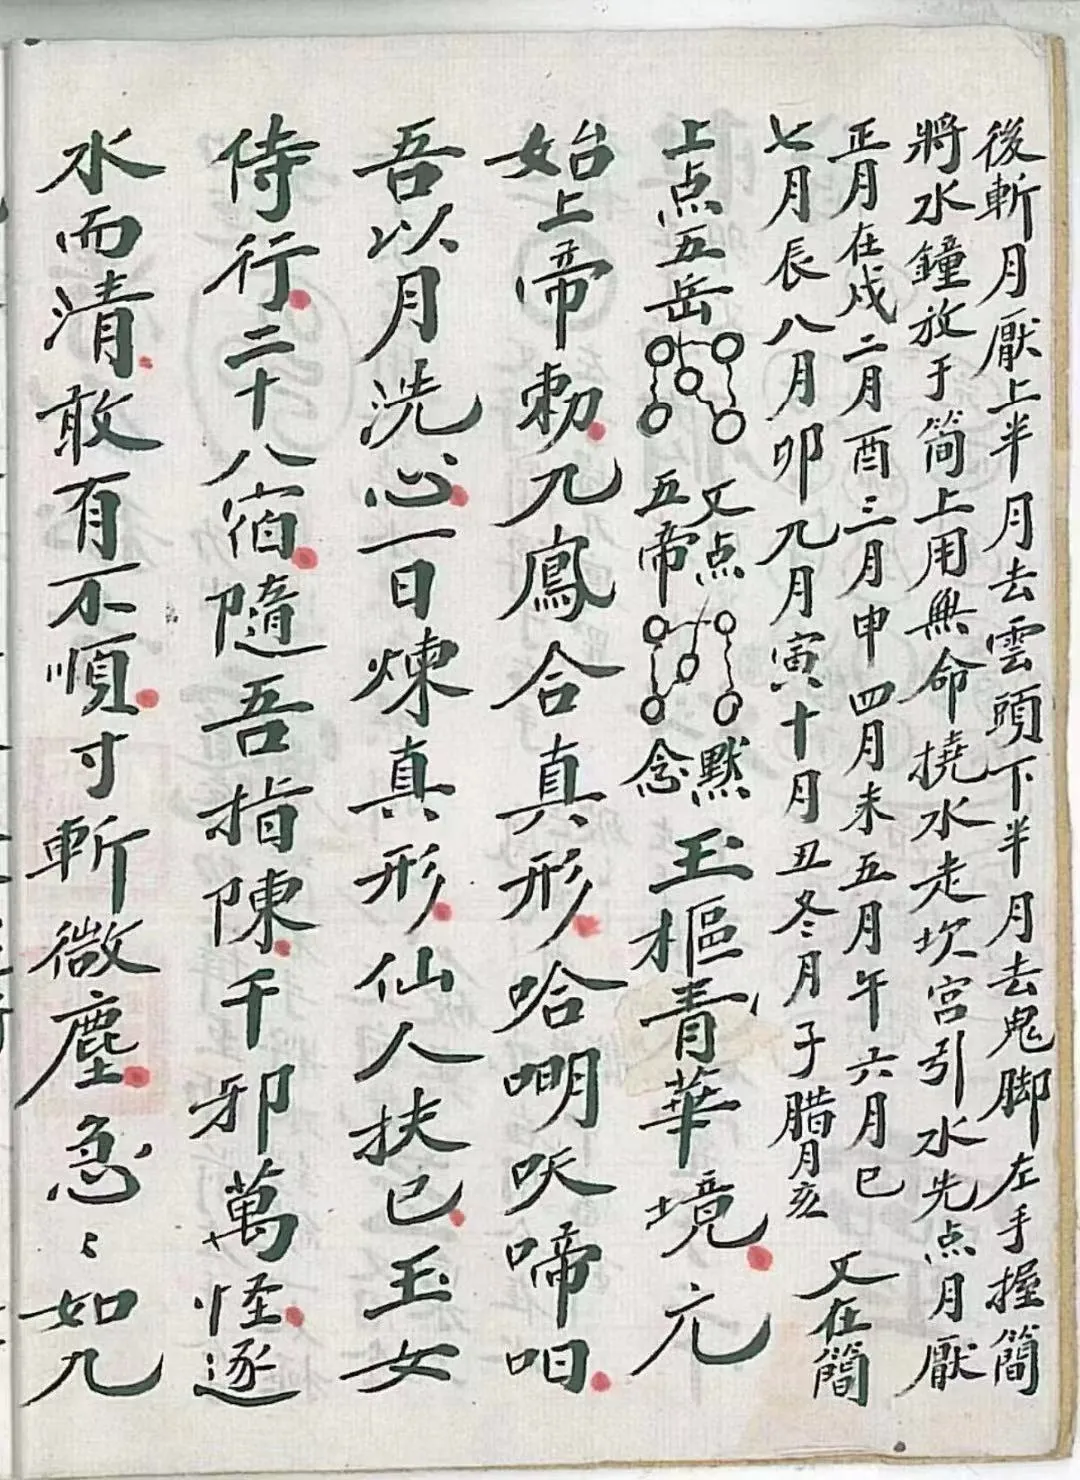 後斬月厭上半月去雲頭下半月去鬼脚左手握簡
將水鐘放于简上用無命撓水走坎宮引水先点月厭
正月在戍二月酉三月申四月未五月午六月巳
七月辰八月卯九月寅十月丑冬月子腊月亥
又在簡
上点五岳
又点
五帝
默
念
玉樞青華境元
始上帝勅九鳳合真形哈明呋啼呬
吾以月洗心一日煉真形仙人扶已玉女
侍行二十八宿隨吾指陳千邪萬怪逐
水而清敢有不順寸斬微塵急〻如九